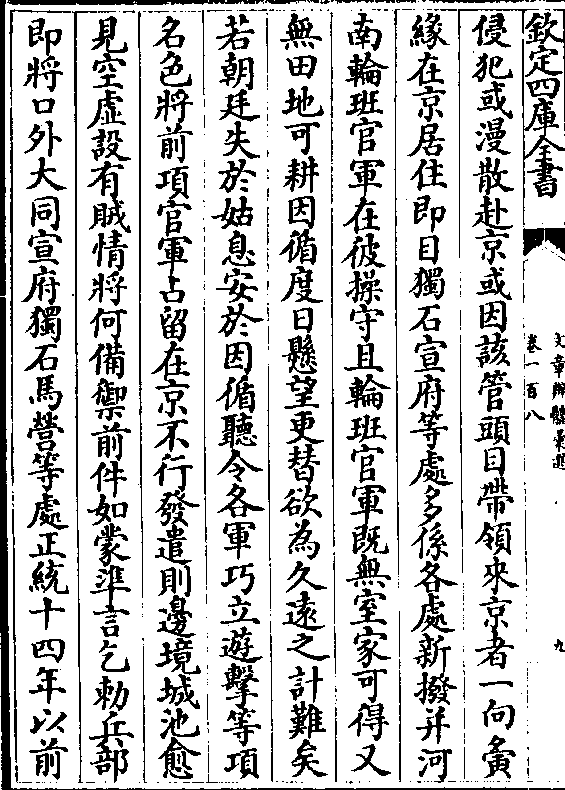 欽定四庫全書
文章辨體彚選
卷一百八
九
侵犯或漫散赴京或因該管頭目帶領來京者一向夤
緣在京居住即目獨石宣府等處多係各處新撥幷河
南輪班官軍在彼操守且輪班官軍既無室家可得又
無田地可耕因循度日懸望更替欲為久遠之計難矣
若朝廷失於姑息安於因循聽令各軍巧立遊擊等項
名色將前項官軍占留在京不行發遣則邊境城池愈
見空虛設有賊情將何備禦前件如蒙準言乞勅兵部
即將口外大同宣府獨石馬營等處正統十四年以前